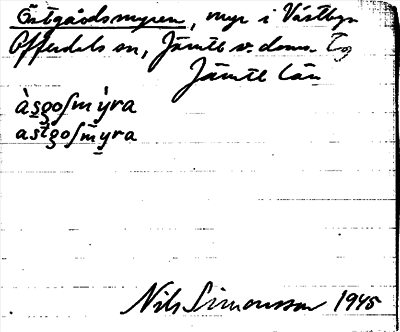 Östgårdsmyren, myr i Västbyn
Offerdals sn, Jämtl v. doms. Tg
Jämtl län
àsgoſmỳra
astgoſmyra
Nils Simonsson 1945